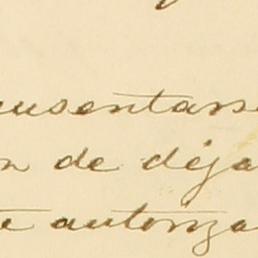 ausentarse
n de déja
te autoriza